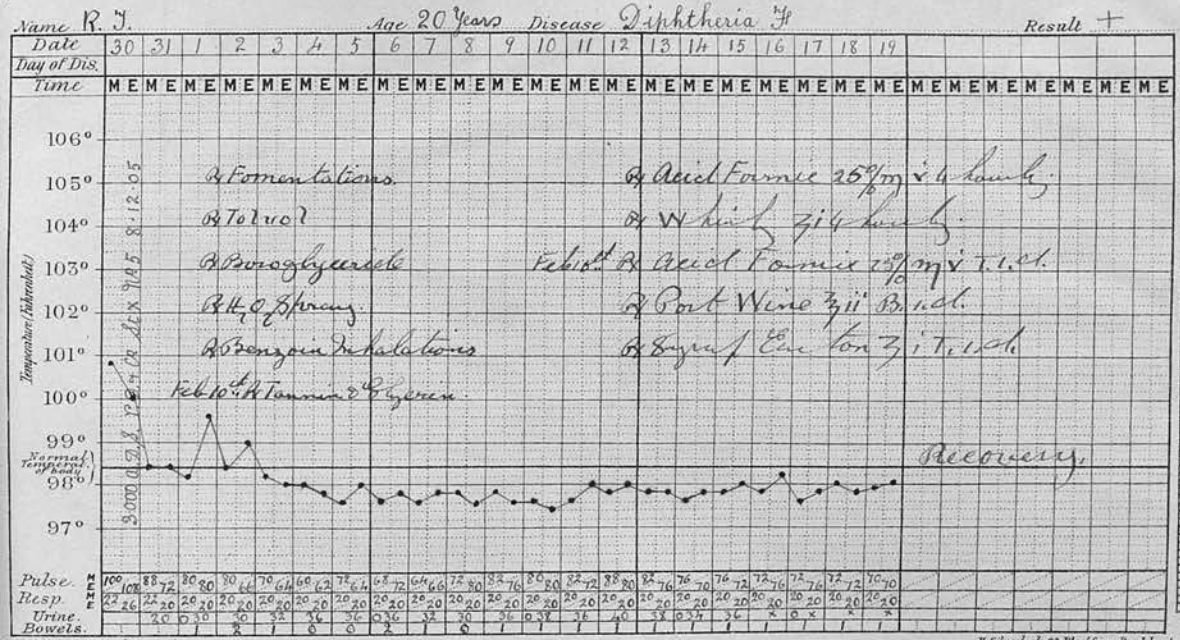 Name R. J. Age 20 Years Disease Diphtheria Result +
Date 30 31 1 2 3 4 5 6 7 8 9 10 11 12 13 14 15 16 17 18 19
Day of Dis.
Time M E M E M E M E M E M E M E M E M E M E M E M E M E M E M E M E M E M E M E M E M E M E M E M E M E M E M E M E
Temperature (Fahrenheit)
106°
105°
104°
103°
102°
101°
100°
99°
Normal Temperat. of body
98°
97°
3000 8.12.05
℞ Fomentations.
℞ Toluol
℞ Boroglyceride
℞ H2O2 Spray.
℞ Benzoin Inhalations
Feb 10th ℞ Tannin & Glycerin.
℞ Acid Formic 25% m v 4 hourly.
℞ Whisky ʒi 4 hourly.
Feb 10th ℞ Acid Formic 25% m v T.i.d.
℞ Port Wine ℥ii B.i.d.
℞ Syrup ʒi T.i.d.
Recovery.
Pulse. M E 100 108 88 72 80 80 80 66 70 64 60 62 72 64 68 72 64 66 72 80 82 76 80 80 82 72 88 80 82 76 76 70 76 72 72 76 72 76 72 72 70 70
Resp. M E 22 26 22 20 20 20 20 20 20 20 20 20 20 20 20 20 20 20 20 20 20 20 20 20 20 20 20 20 20 20 20 20 20 20 20 20 20 20 20 20 20 20
Urine. 20 30 30 32 36 36 36 32 30 36 38 36 40 38 34 36
Bowels.